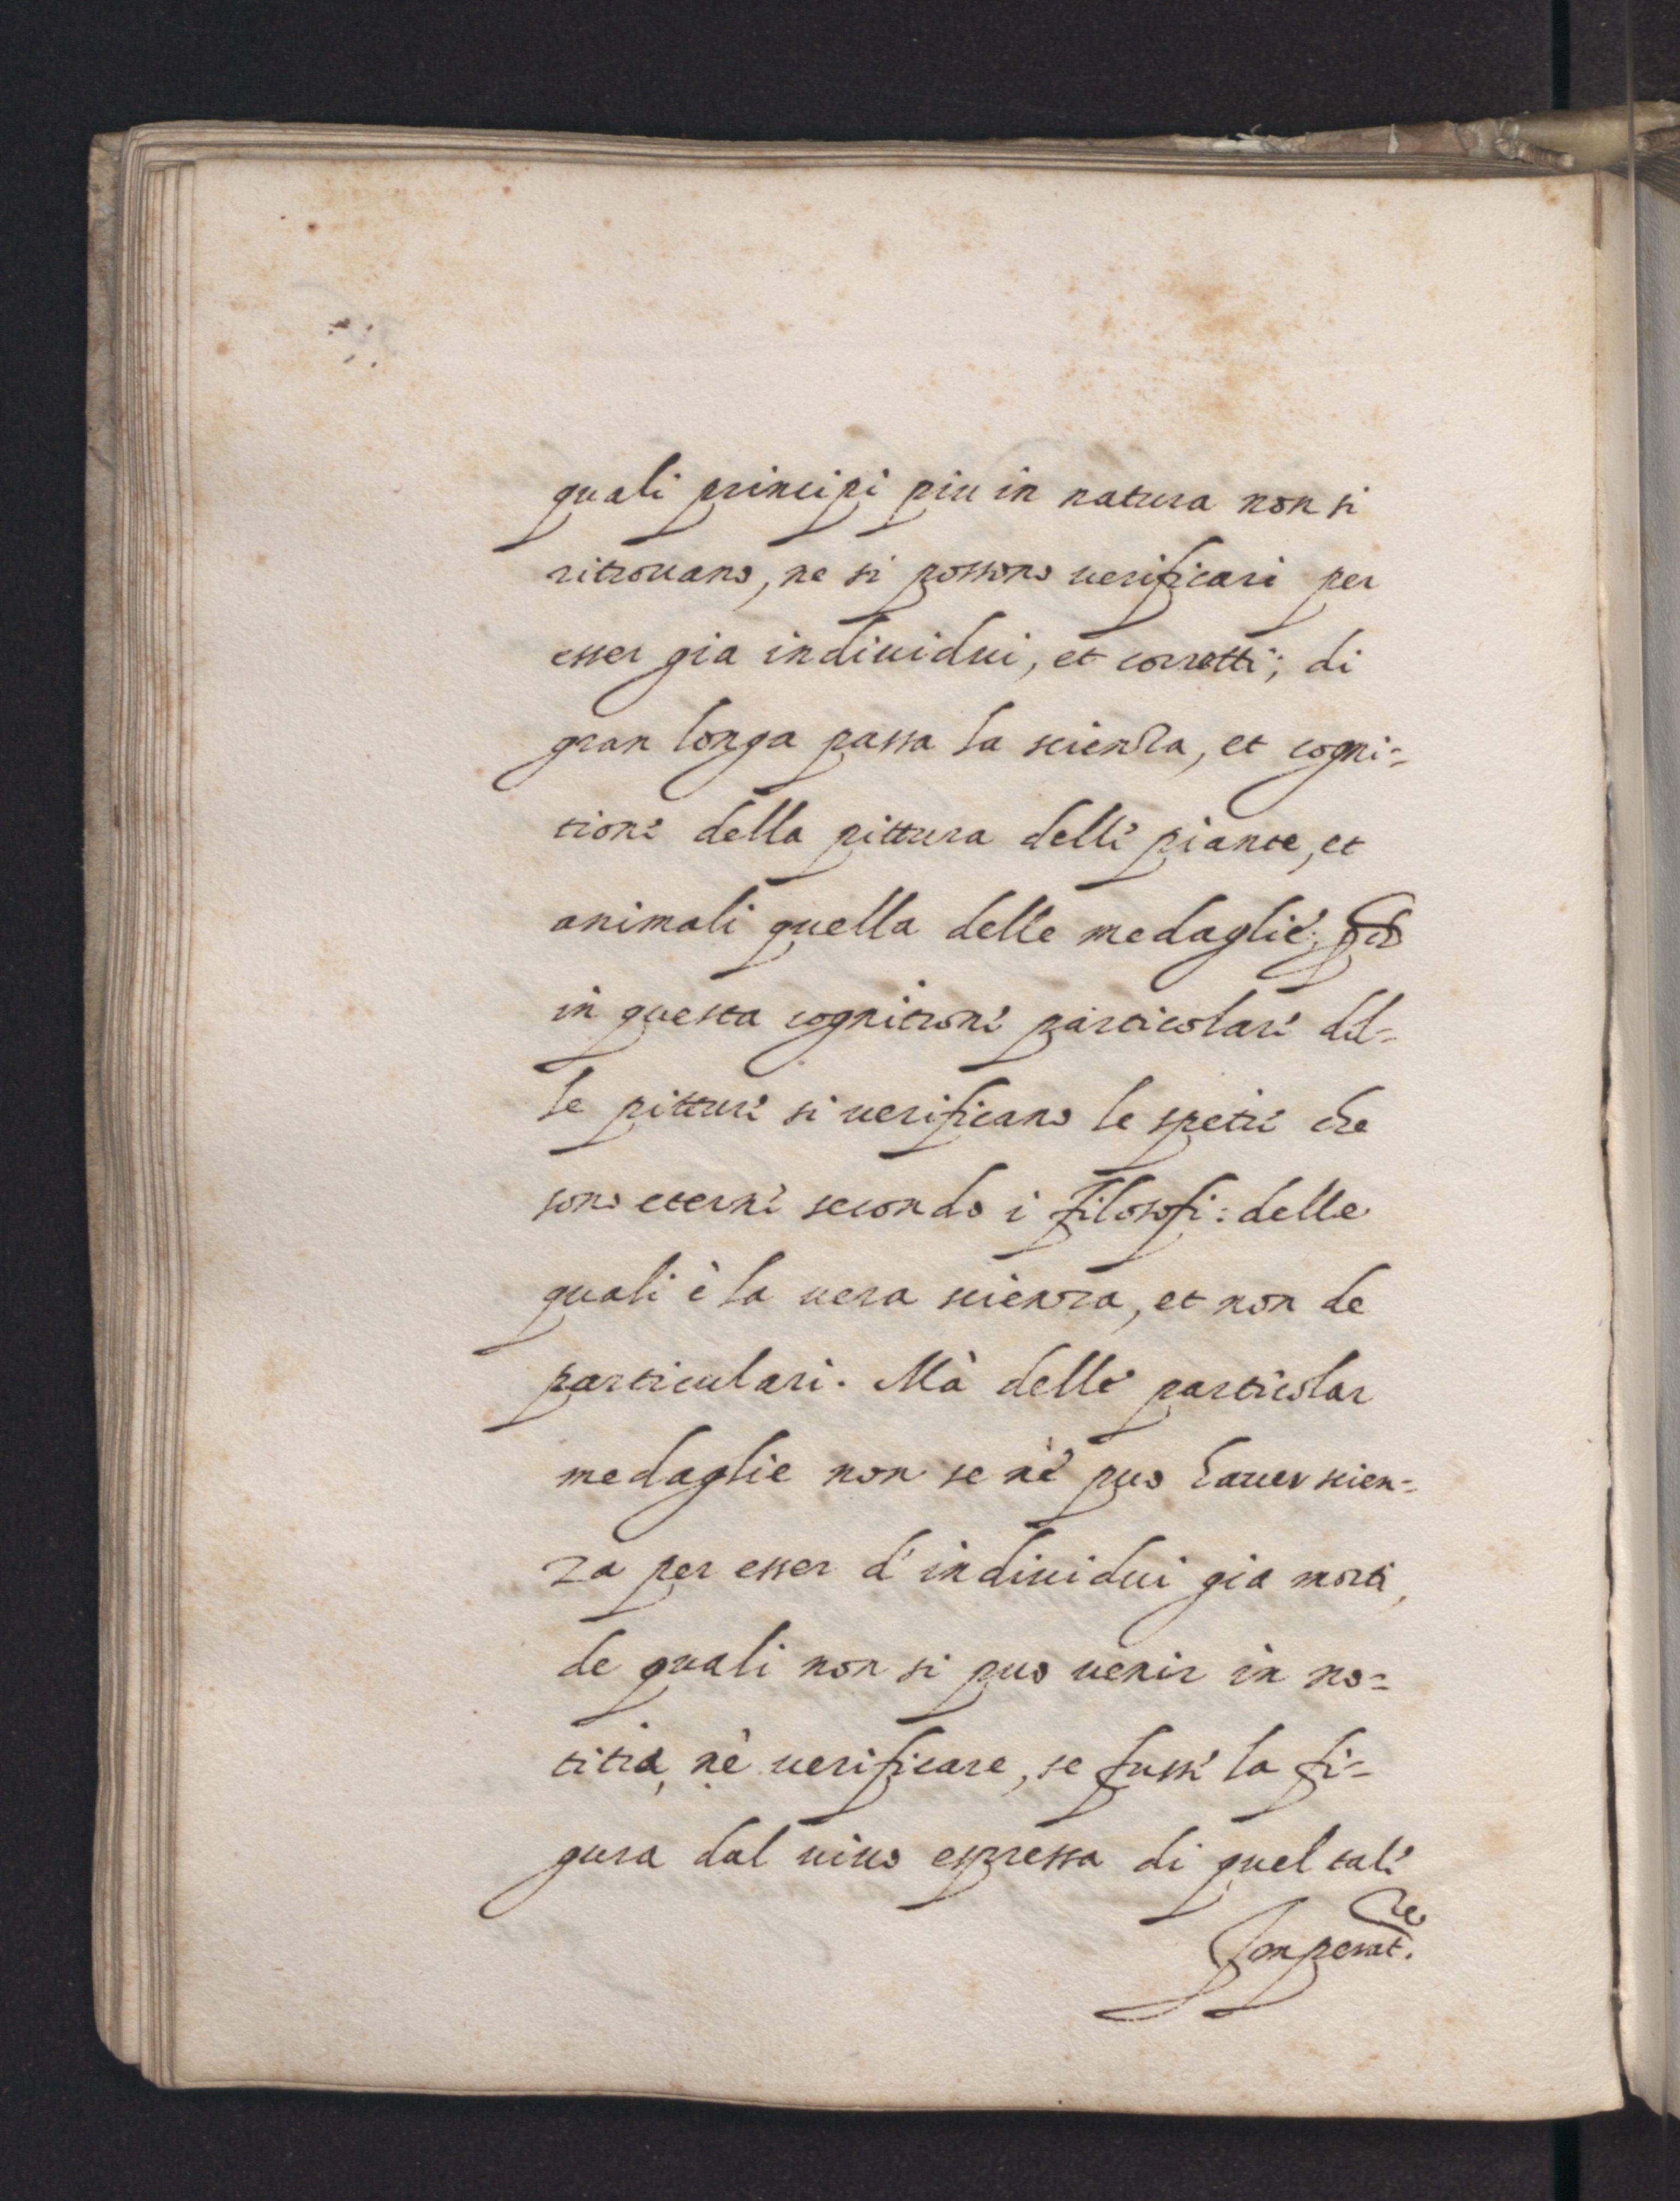 quali principi piu in natura non si
ritrouano, ne si possono uerificari per
esser gia indiuidui, et corretti; di
gran longa passa la scienza, et cogni=
tione della pittura delle piante, et
animali quella delle medaglie;
in questa cognitione particolare del=
le pitture si uerificano le spetie che
sono eterne secondo i filosofi: delle
quali è la uera scienza, et non de
particulari. Mà delle particolar
medaglie non se nè puo hauer scien=
za per esser d'indiuidui gia morti,
de quali non si puo uenir in no=
titia, nè uerificare, se fusse la fi=
gura dal uiuo espressa di quel tale